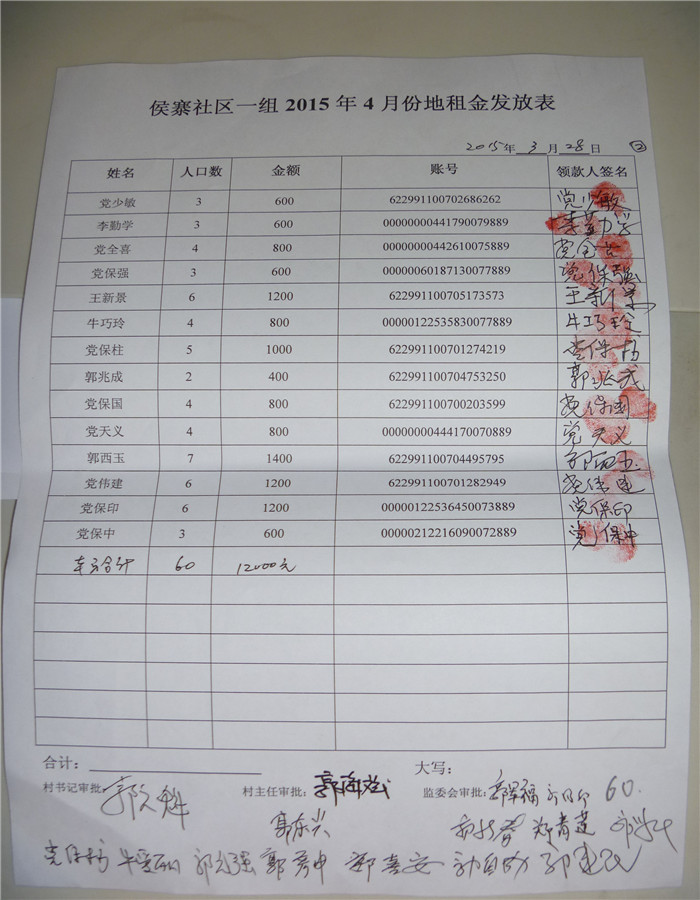 侯寨社区一组 2015 年 4 月份地租金发放表
2015年 3 月 28 日 ②
姓名 人口数 金额 账号 领款人签名
党少敏 3 600 622991100702686262 党少敏
李勤学 3 600 00000000441790079889 李勤学
党全喜 4 800 00000000442610075889 党全喜
党保强 3 600 00000060187130077889 党保强
王新景 6 1200 622991100705173573 王新景
牛巧玲 4 800 00000122535830077889 牛巧玲
党保柱 5 1000 622991100701274219 党保柱
郭兆成 2 400 622991100704753250 郭兆成
党保国 4 800 622991100700203599 党保国
党天义 4 800 00000000444170070889 党天义
郭西玉 7 1400 622991100704495795 郭西玉
党伟建 6 1200 622991100701282949 党伟建
党保印 6 1200 00000122536450073889 党保印
党保中 3 600 00000212216090072889 党保中
本页合计 60 12000元
合计： 大写：
村书记审批： 村主任审批： 监委会审批： 60.